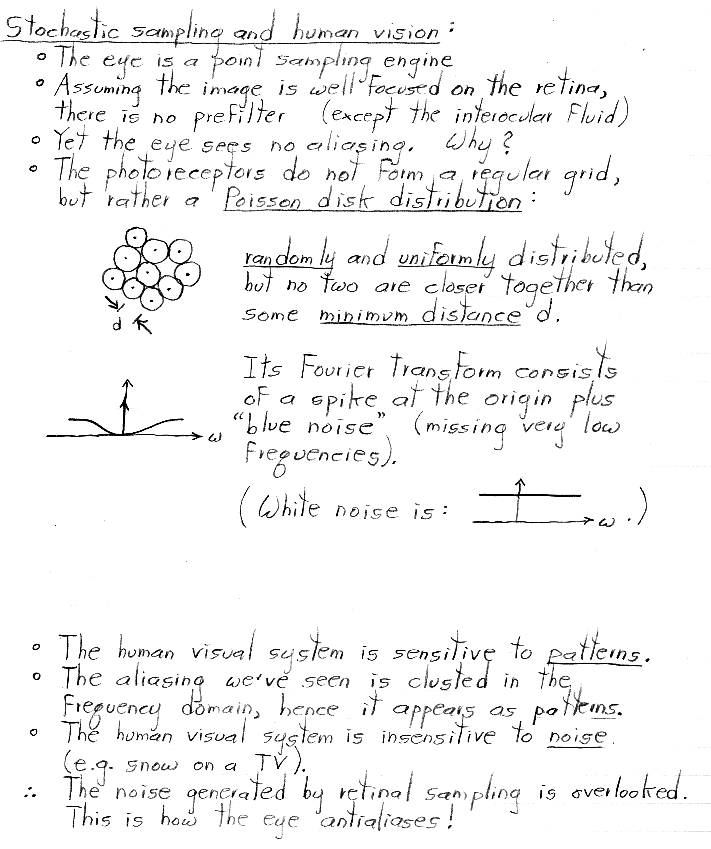 Stochastic sampling and human vision:
° The eye is a point sampling engine
° Assuming the image is well focused on the retina,
there is no prefilter (except the interocular fluid)
° Yet the eye sees no aliasing. Why?
° The photoreceptors do not form a regular grid,
but rather a Poisson disk distribution:
randomly and uniformly distributed,
but no two are closer together than
some minimum distance d.
d
Its Fourier transform consists
of a spike at the origin plus
"blue noise" (missing very low
frequencies).
ω
(White noise is: ω.)
° The human visual system is sensitive to patterns.
° The aliasing we've seen is clusted in the
frequency domain, hence it appears as patterns.
° The human visual system is insensitive to noise.
(e.g. snow on a TV).
∴ The noise generated by retinal sampling is overlooked.
This is how the eye antialiases!